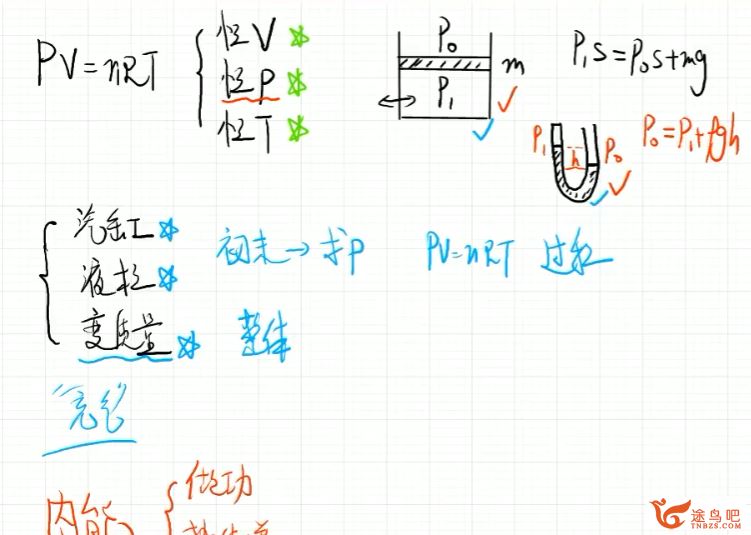 PV=nRT
恒V
恒P
恒T
P₀
P₁
m
P₁S=P₀S+mg
P₁
h
P₀
P₀=P₁+ρgh
汽缸
液柱
变质量
初末→求P
PV=nRT 过程
整体
内能
做功
途鸟吧
TNBZS.COM